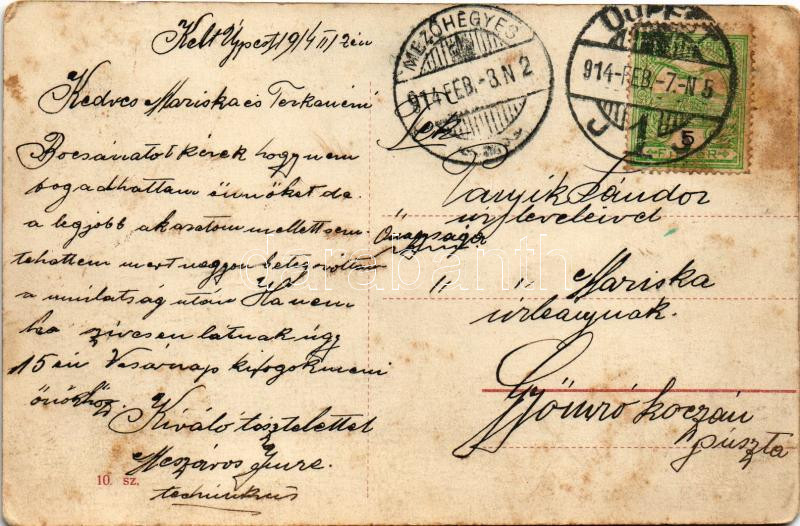 Kelt Ujpest 1914 II/2én
Kedves Mariska és Terkanéni
Bocsánatot kérek hogy nem
fogadhattam önnöket de
a legjobb akaratom mellett sem
tehettem mert nagyon beteg voltam
a mulatság után Ha nem
ha szivesen látnak úgy
15 én Vasárnap kifogok menni
önökhöz.
Kiváló tisztelettel
Meszáros Imre.
technikus
10. sz.
MEZŐHEGYES
914-FEB.-3.N 2
914-FEB.-7.-N 5
1
5
FILLÉR
Sándor
úr leveleivel
Őnagysága
" " Mariska
úrleánynak.
Gyömrő koczán
puszta
darabanth